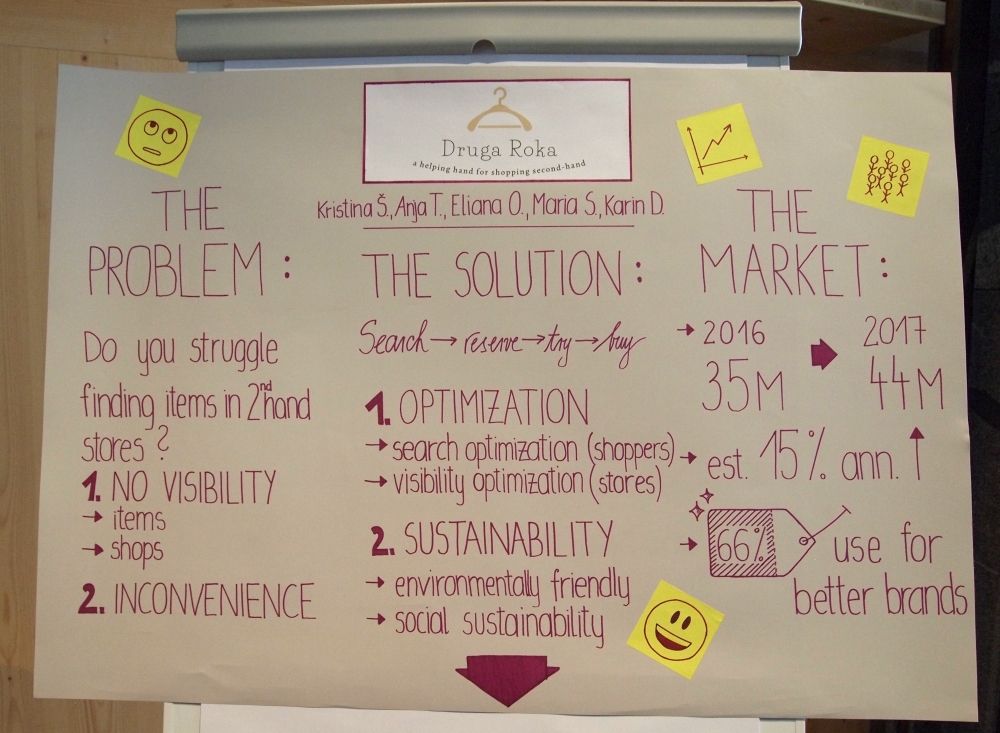 Druga Roka
a helping hand for shopping second-hand
Kristina Š., Anja T., Eliana O., Maria S., Karin D.
THE
PROBLEM:
Do you struggle
finding items in 2nd hand
stores?
1. NO VISIBILITY
→ items
→ shops
2. INCONVENIENCE
THE SOLUTION:
Search → reserve → try → buy
1. OPTIMIZATION
→ search optimization (shoppers)
→ visibility optimization (stores)
2. SUSTAINABILITY
→ environmentally friendly
→ social sustainability
THE
MARKET:
→ 2016 → 2017
35M 44M
→ est. 15% ann. ↑
→ 66% use for
better brands